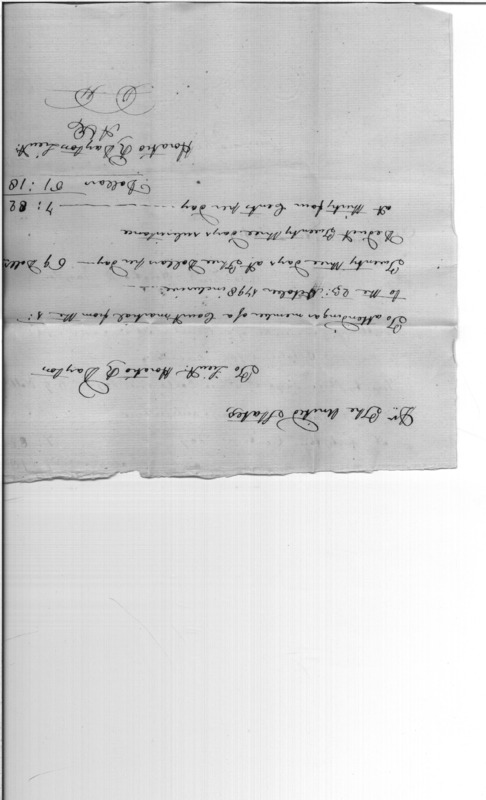 Dr. The United States,
To Lieut. Horatio R Dayton
To attending a member of a Court martial from the 1:
to the 23: October 1798 inclusive -
Twenty three days at Three Dollars per day — 69 Dolls
Deduct Twenty three days subsistence
at thirty four Cents per day 7:82
Dollars 61:18
Horatio R Dayton Lieut.